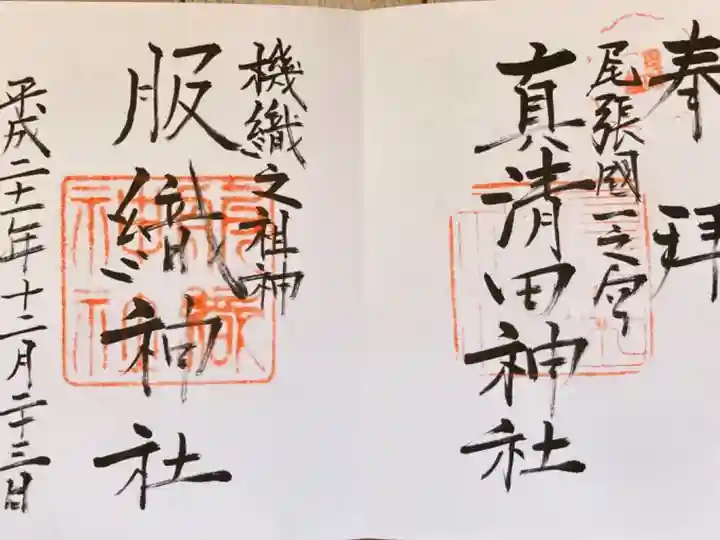 奉拝
尾張國一之宮
真清田神社
機織之祖神
服織神社
平成二十一年十二月二十三日